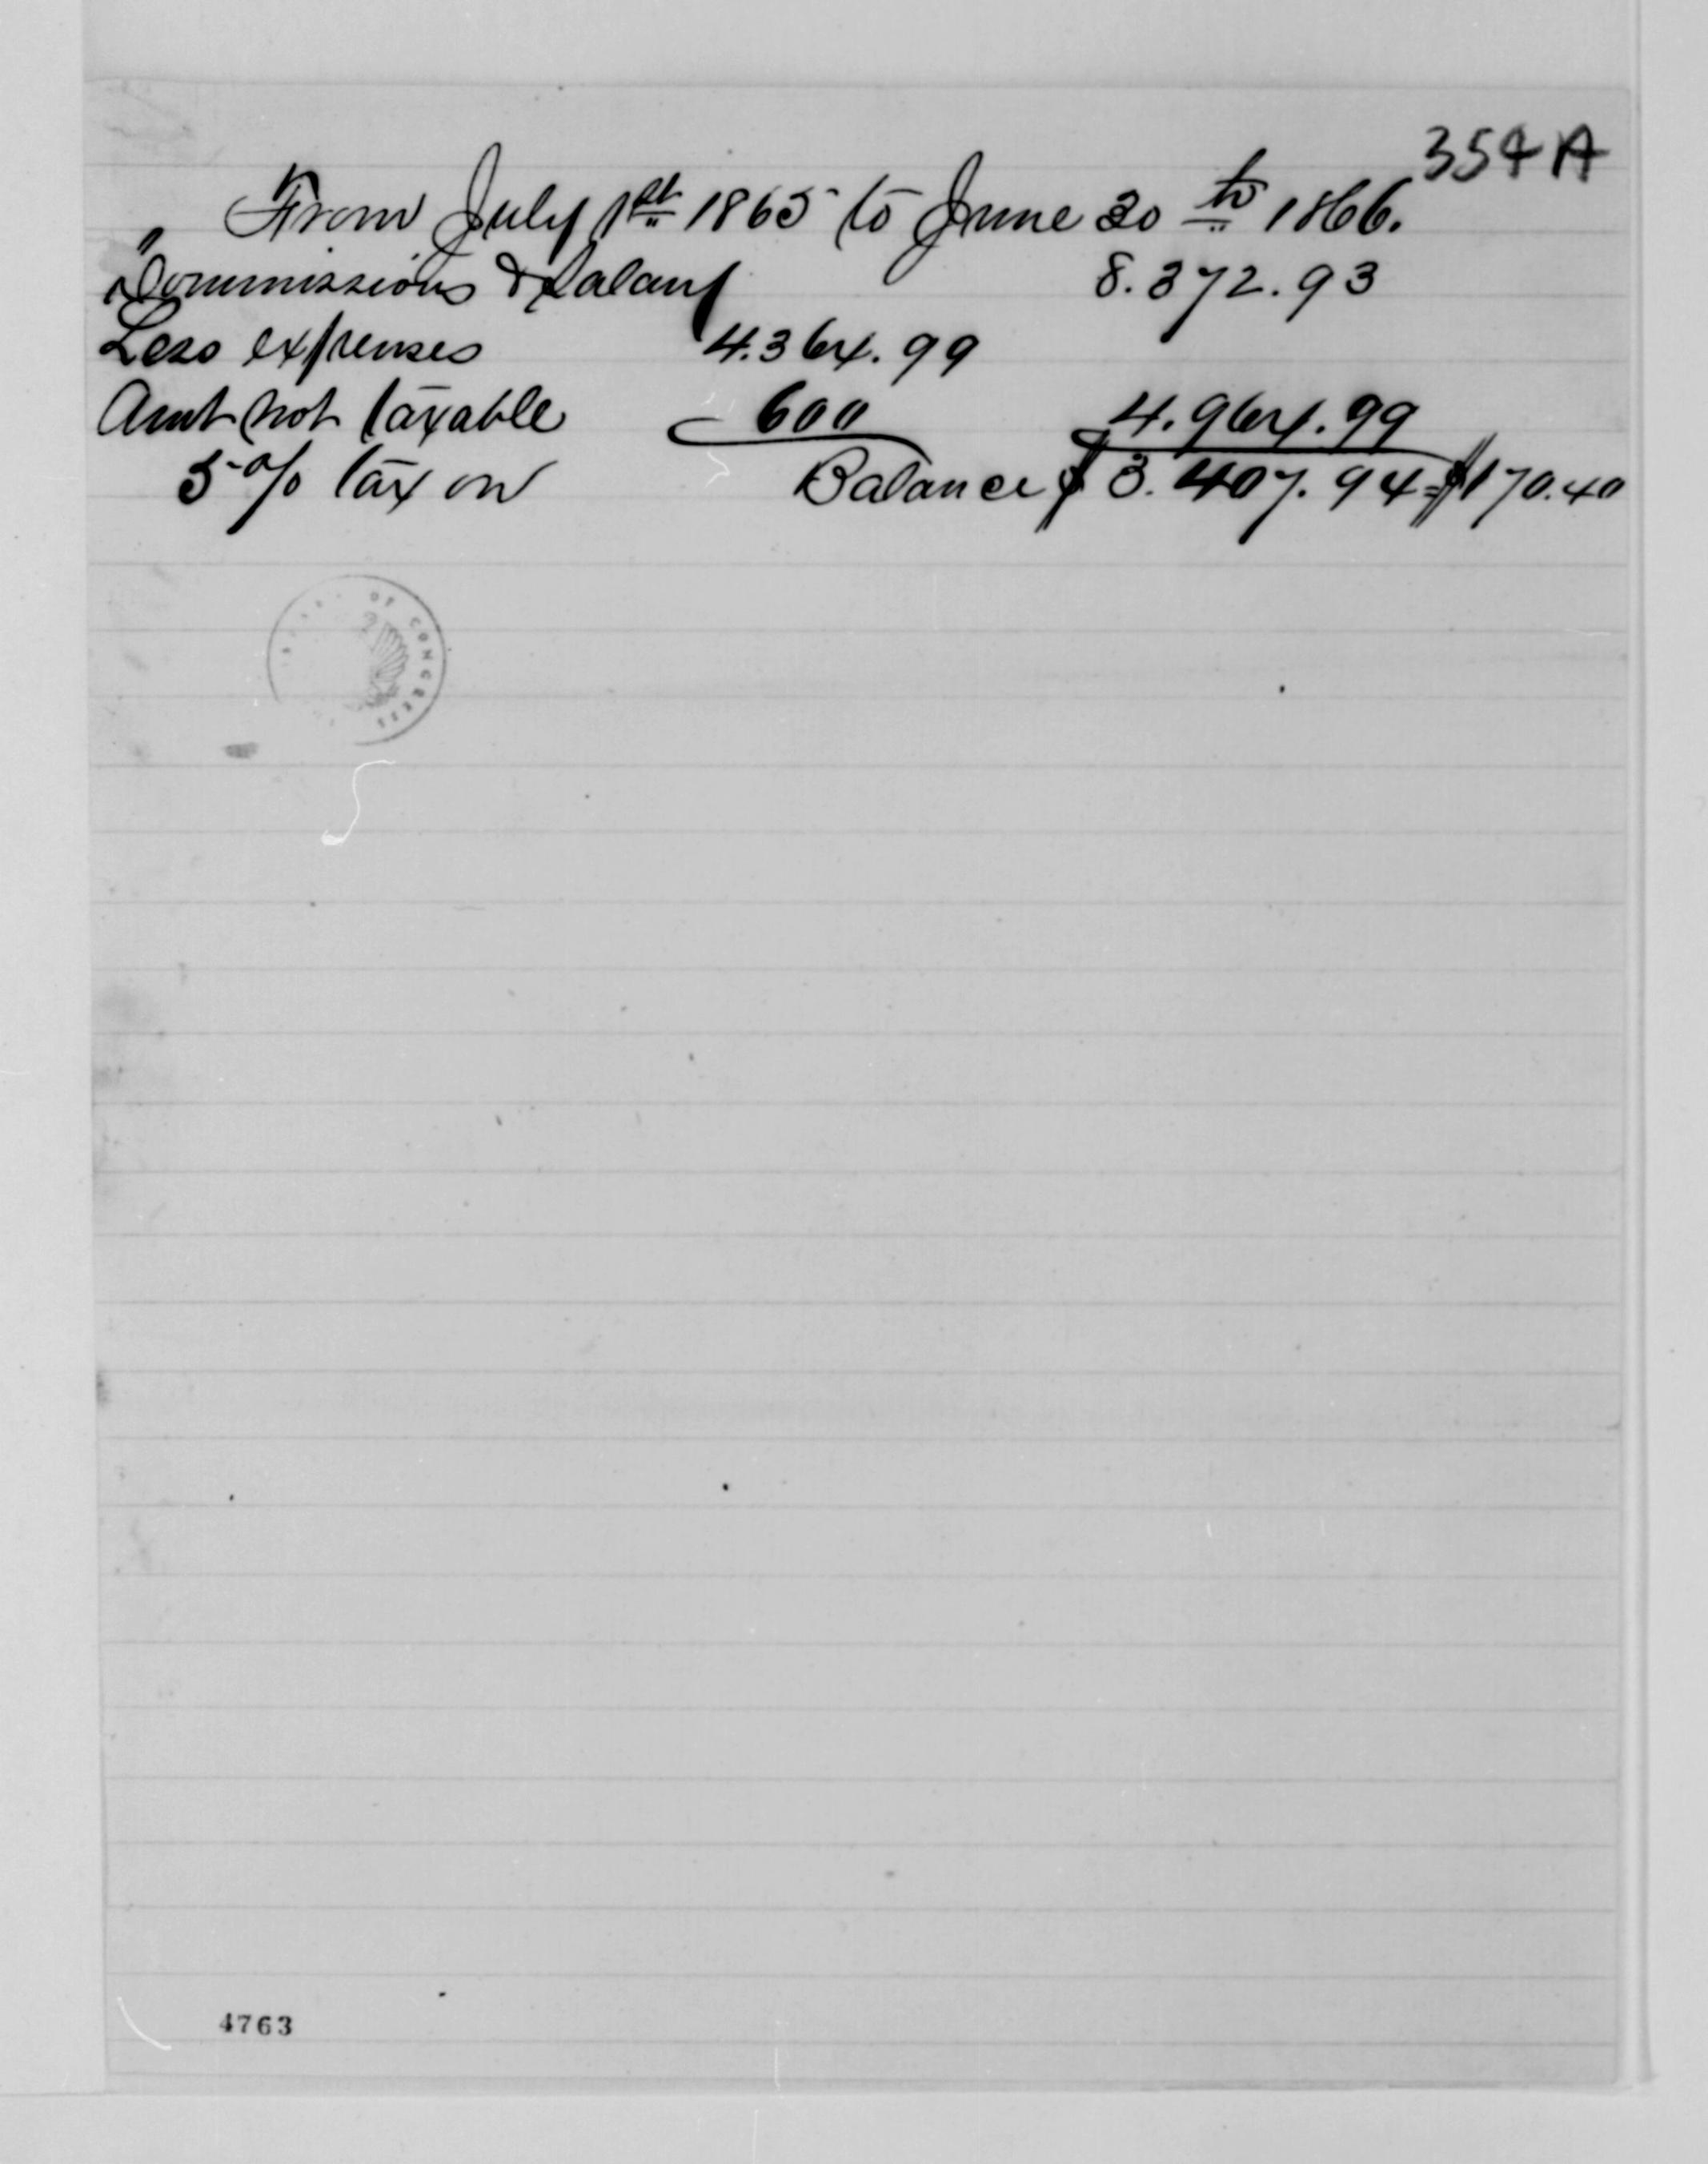 354 A
From July 1st 1865 to June 30th 1866.
" Commissions & Salary 8.372.93
Less expenses 4.364.99
Amt not taxable 600 4.964.99
5% tax on Balance $ 3.407.94=$170.40
OF CONGRESS
4763